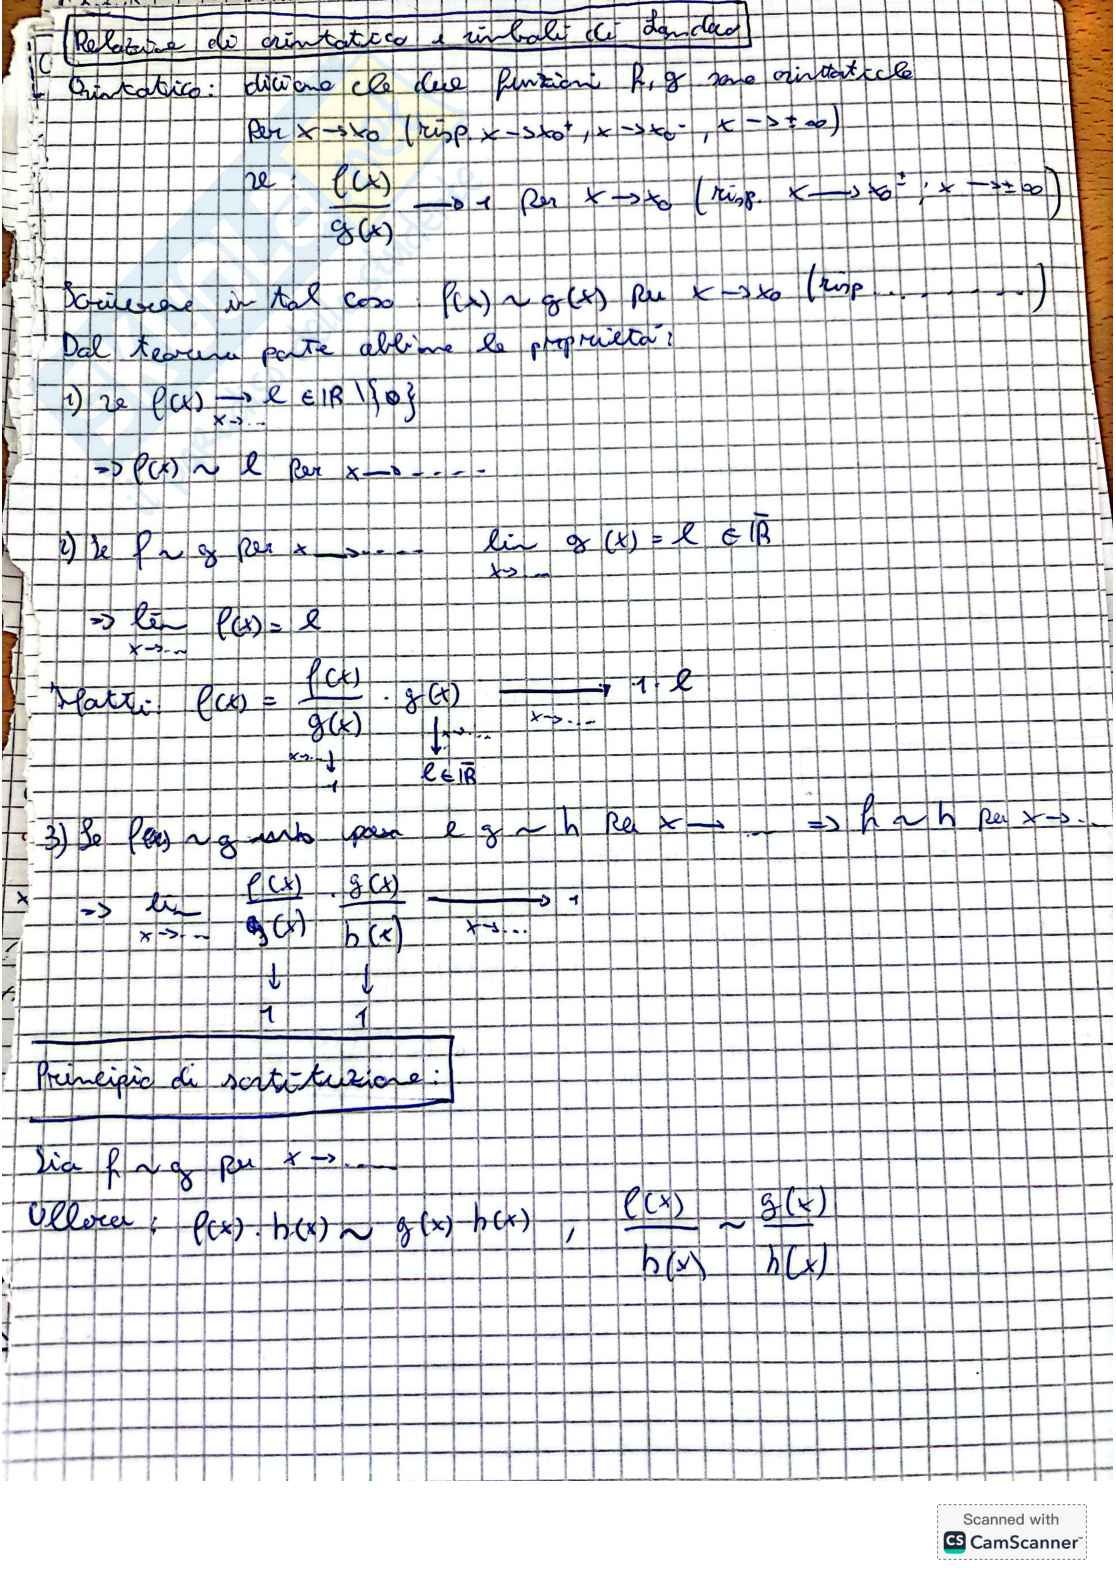 Relazione di asintotico e simboli di Landau
Asintotico: diciamo che due funzioni f, g sono asintotiche
per x → x₀ (risp. x → x₀⁺, x → x₀⁻, x → ±∞)
se: f(x)/g(x) → 1 per x → x₀ (risp. x → x₀±, x → ±∞)
Scriveremo in tal caso f(x) ~ g(x) per x → x₀ (risp..........)
Dal teorema parte abbiamo le proprietà:
1) se f(x) → l ∈ ℝ \ {0}
x→...
=> f(x) ~ l per x → ....
2) Se f ~ g per x → ..... lim g(x) = l ∈ ℝ̄
x→...
=> lim f(x) = l
x→...
Infatti: f(x) = f(x)/g(x) · g(x) → 1 · l
x→... ↓ 1 ↓ x→... l ∈ ℝ̄ x→....
3) Se f(x) ~ g e g ~ h per x → ... => f ~ h per x → ...
=> lim f(x)/g(x) · g(x)/h(x) → 1
x→... x→...
↓ ↓
1 1
Principio di sostituzione:
Sia f ~ g per x → ....
Allora: f(x) · h(x) ~ g(x) h(x) , f(x)/h(x) ~ g(x)/h(x)
Scanned with
CS CamScanner